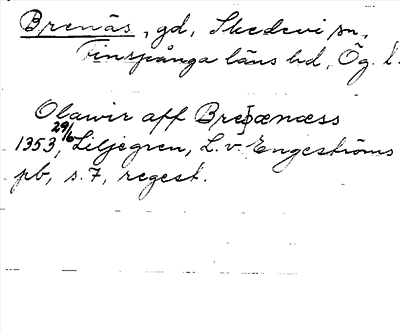 Brenäs, gd, Skedevi sn,
Finspånga läns hd, Ög. l.
Olawir aff Bre[ænæss
1353 29/6, Liljegren, L. v. Engeströms
pb, s. 7, regest.